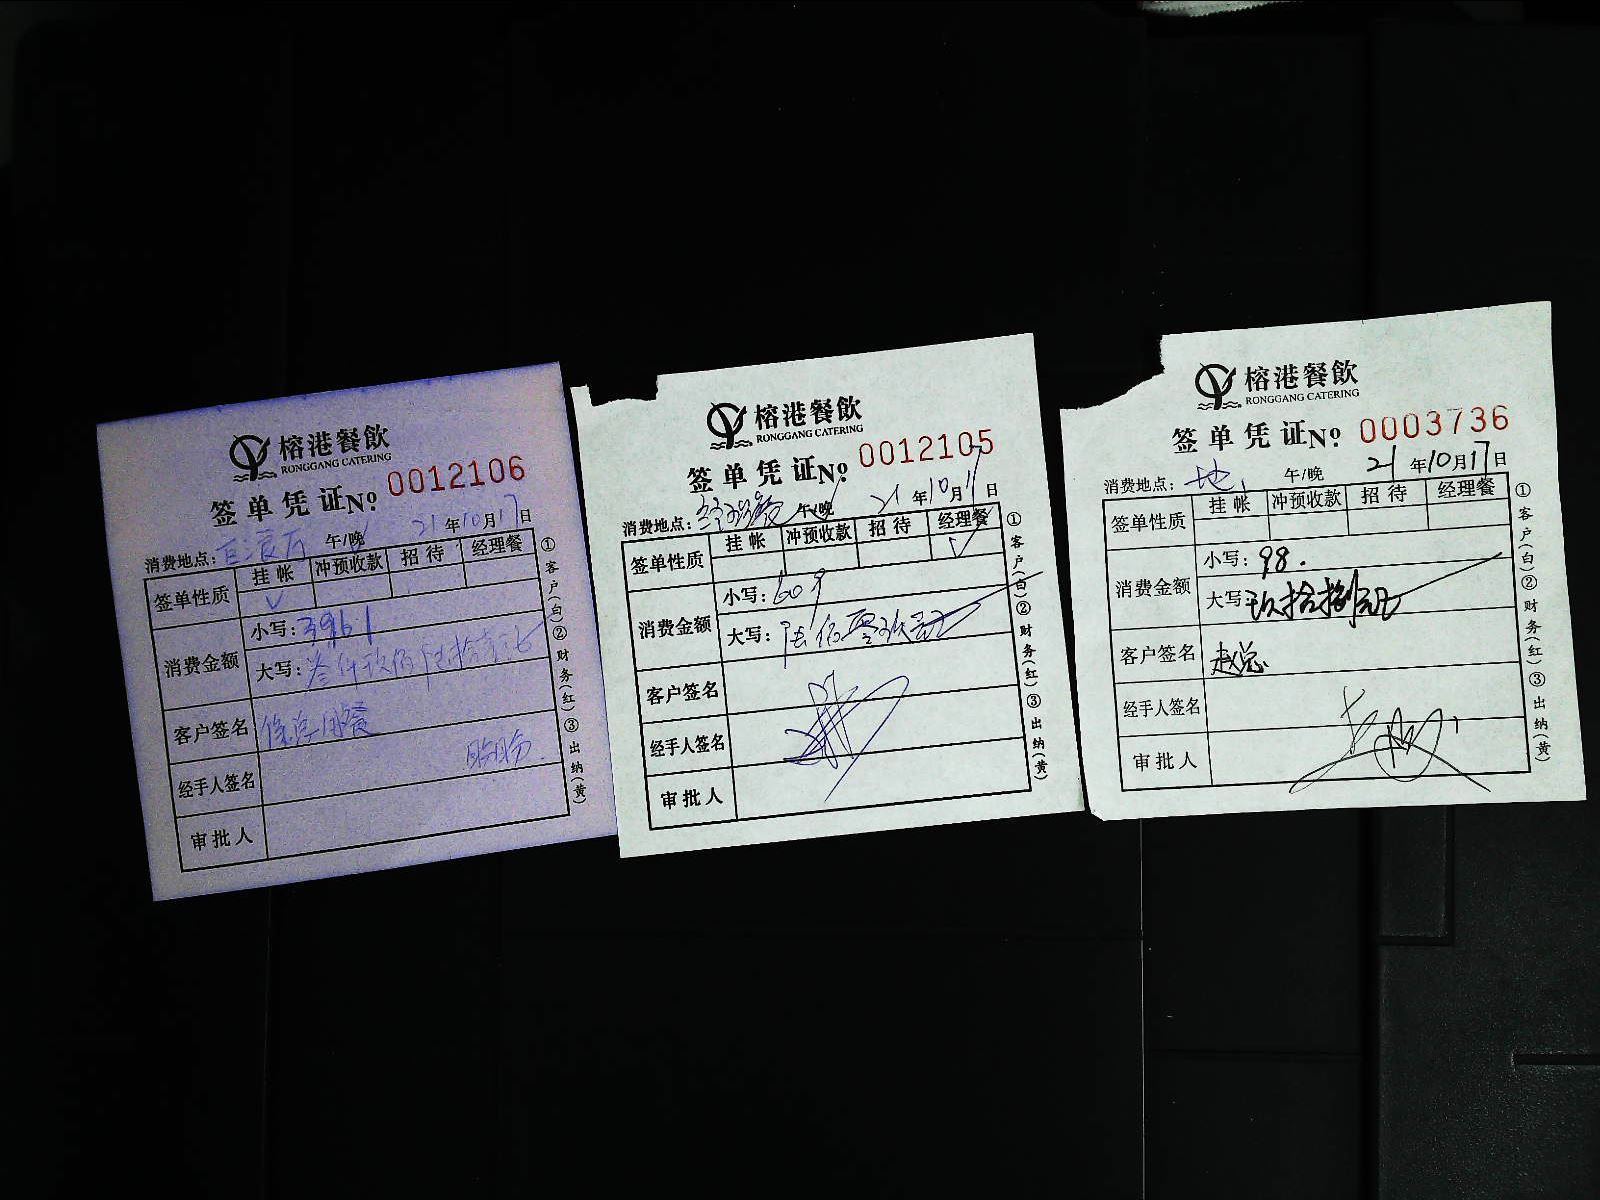 榕港餐飲
RONGGANG CATERING
签单凭证№ 0012106
消费地点: 午/晚 21年10月17日
签单性质 挂帐 冲预收款 招待 经理餐
✓
消费金额 小写: 3961
大写: 叁仟玖佰陆拾壹元
客户签名
经手人签名
审批人
①客户(白)②财务(红)③出纳(黄)
榕港餐飲
RONGGANG CATERING
签单凭证№ 0012105
消费地点: 经理餐 午/晚 21年10月17日
签单性质 挂帐 冲预收款 招待 经理餐
✓
消费金额 小写: 609
大写: 陆佰零玖元
客户签名
经手人签名
审批人
①客户(白)②财务(红)③出纳(黄)
榕港餐飲
RONGGANG CATERING
签单凭证№ 0003736
消费地点: 午/晚 21年10月17日
签单性质 挂帐 冲预收款 招待 经理餐
消费金额 小写: 98.
大写: 玖拾捌元
客户签名 赵总
经手人签名
审批人
①客户(白)②财务(红)③出纳(黄)